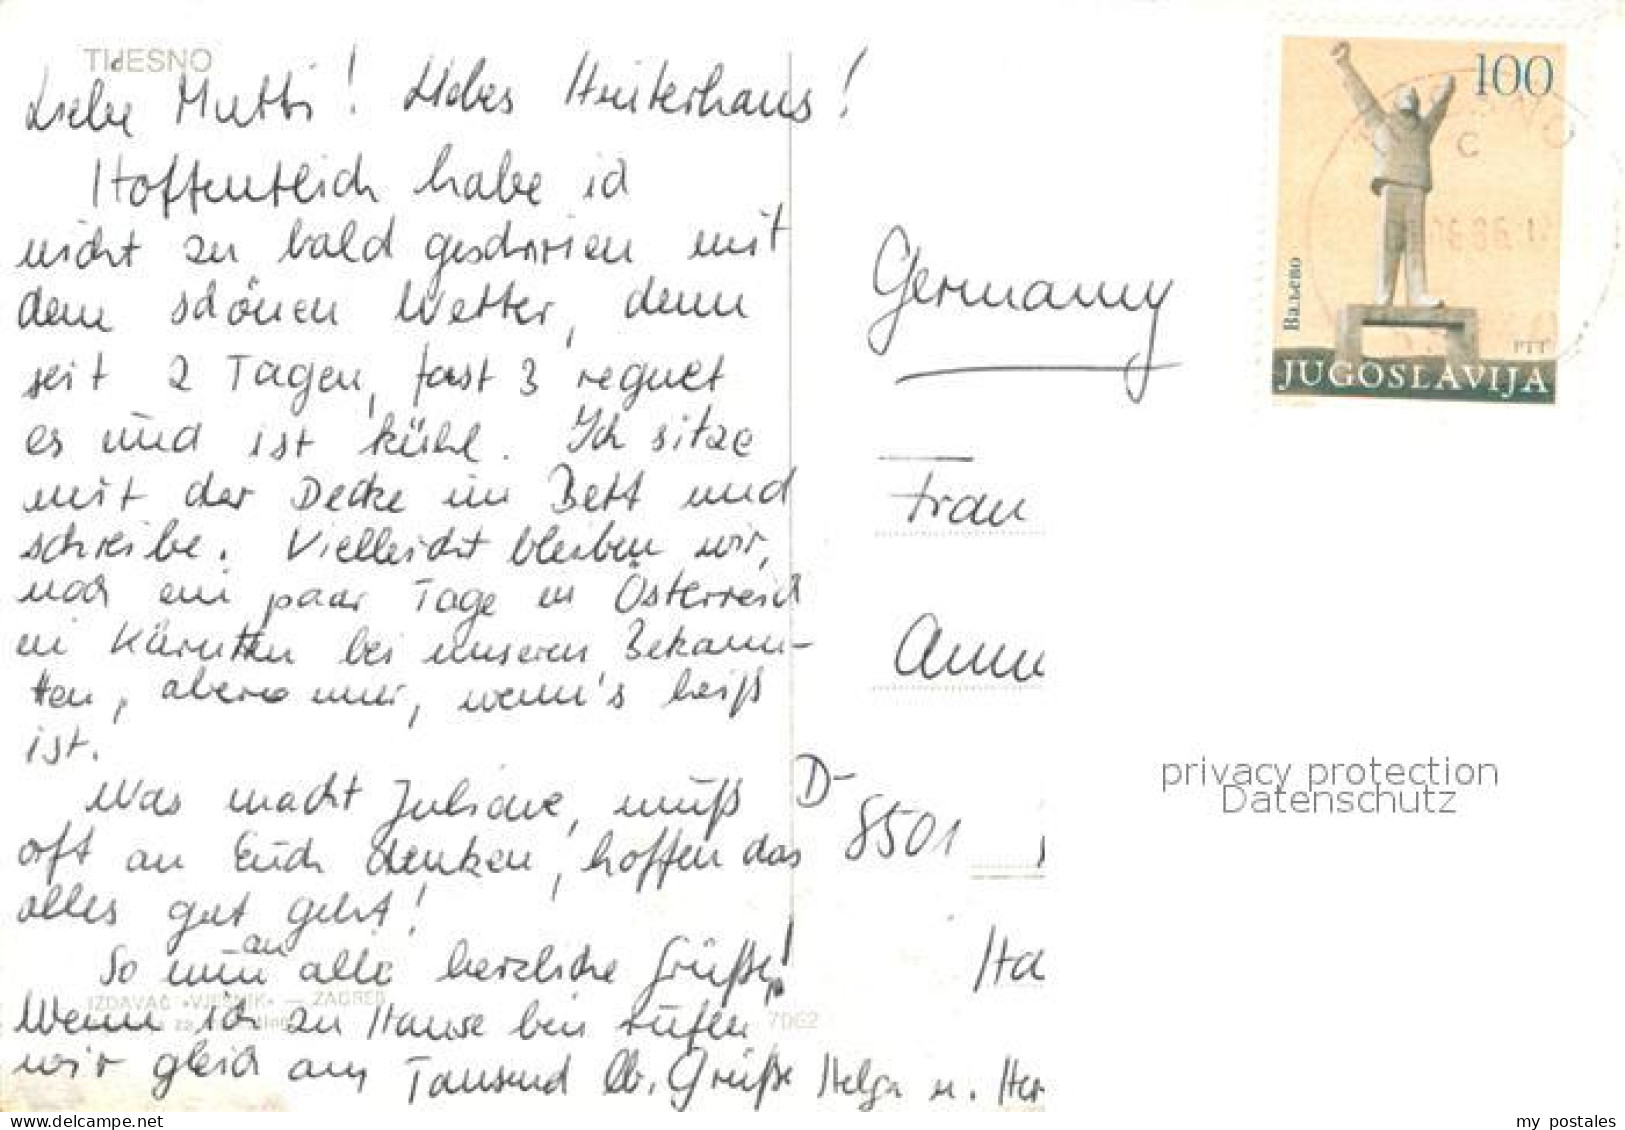 TIJESNO
Liebe Mutti! Liebes Hinterhaus!
Hoffentlich habe ich
nicht zu bald geschrieen mit
dem schönen Wetter, denn
seit 2 Tagen, fast 3 regnet
es und ist kühl. Ich sitze
mit der Decke im Bett und
schreibe. Vielleicht bleiben wir,
noch ein paar Tage in Österreich
in Kärnten bei unseren Bekann-
ten, aber nur, wenn's heiß
ist.
Was macht Juliane, muß
oft an Euch denken, hoffen das
alles gut geht!
So nun an alle herzliche Grüße!
Wenn ich zu Hause bin rufen
wir gleich an, Tausend lb. Grüße Helga u. Her
IZDAVAČ »VJESNIK« — ZAGREB
za
7062
Germany
Frau
Anne
D-
8501
Ha
100
Ваљево
PTT
JUGOSLAVIJA
06.86.
privacy protection
Datenschutz
my postales